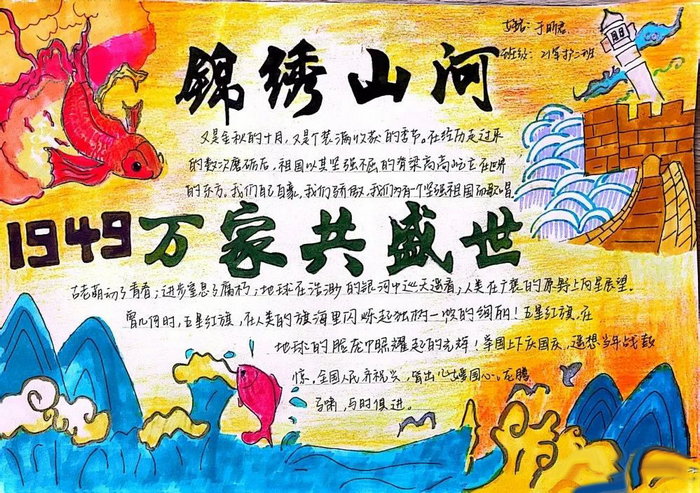 锦绣山河
姓名：于昕君
班级：21年护二班
又是金秋的十月，又是个装满收获的季节，在经历走过来
的数次磨砺后，祖国以其坚强不屈的脊梁高高屹立在世界
的东方，我们自豪，我们骄傲，我们为有个坚强祖国而歌唱
1949万家共盛世
萌动了青春；进步窒息了腐朽；地球在浩渺的银河中巡天遥看；人类在广袤的原野上向星展望。
曾几何时，五星红旗，在人类的旗海里闪烁起独树一帜的绚丽！五星红旗，在
地球的胸龙中照耀起的光辉！举国上下庆国庆，遥想当年战鼓
惊，全国人民齐祝兴，皆出心爱国心。龙腾
马啸，与时俱进。